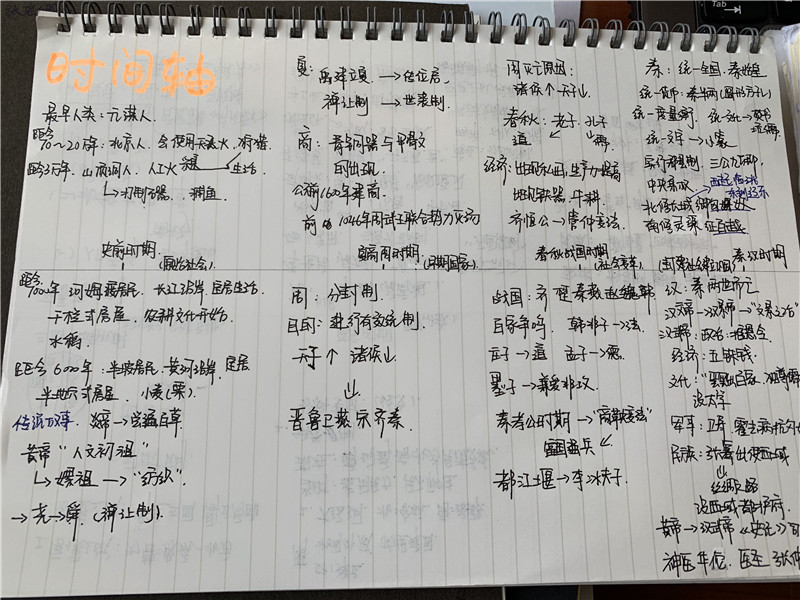 时间轴
最早人类：元谋人.
距今
70～20万年：北京人. 会使用天然火、狩猎
距今3万年. 山顶洞人. 人工火
打制石器、捕鱼
史前时期
(原始社会)
距今
7000年 河姆渡居民. 长江沿岸. 定居生活.
干栏式房屋. 农耕文化开始.
水稻.
距今 6000年：半坡居民. 黄河沿岸. 定居
半地穴式房屋. 小麦(粟).
炎帝→尝遍百草
黄帝 "人文初祖"
嫘祖 → "纺织".
→ 尧→舜. (禅让制).
夏：禹建立夏. →
禅让制 → 世袭制.
商：青铜器与甲骨文
的出现.
公前1600年建商.
前1046年周武王联合势力灭商
夏商周时期
(早期国家)
周：分封制.
目的：进行有效统制.
天子↑ 诸侯↓
↓
晋鲁卫燕宋齐秦.
周灭亡原因：
诸侯↑ 天子↓.
春秋：老子. 孔子
道 儒
经济：生产力提高
出现铁器、牛耕
齐桓公→管仲变法.
春秋战国时期
(社会变革)
战国：齐 楚 秦 燕 赵 魏 韩
百家争鸣. 韩非子→法.
→道 孟子→儒.
墨子→兼爱非攻.
秦孝公时期→"商鞅变法"
富国强兵
都江堰→李冰父子.
秦：统一全国. 秦始皇
统一货币：秦半两(圆形方孔)
统一度量衡.
统一文字→小篆
实行郡县制. 三公九卿.
中央集权
北修长城
南修灵渠 征百越
秦汉时期
汉：秦两世而亡
汉文帝→汉景帝→"文景之治"
汉武帝：政治：推恩令.
经济：五铢钱.
文化："罢黜百家，独尊儒
设太学
军事：卫青 霍去病抗匈
民族：张骞出使西域
↓
丝绸之路
设西域都护府.
神医华佗. 医圣